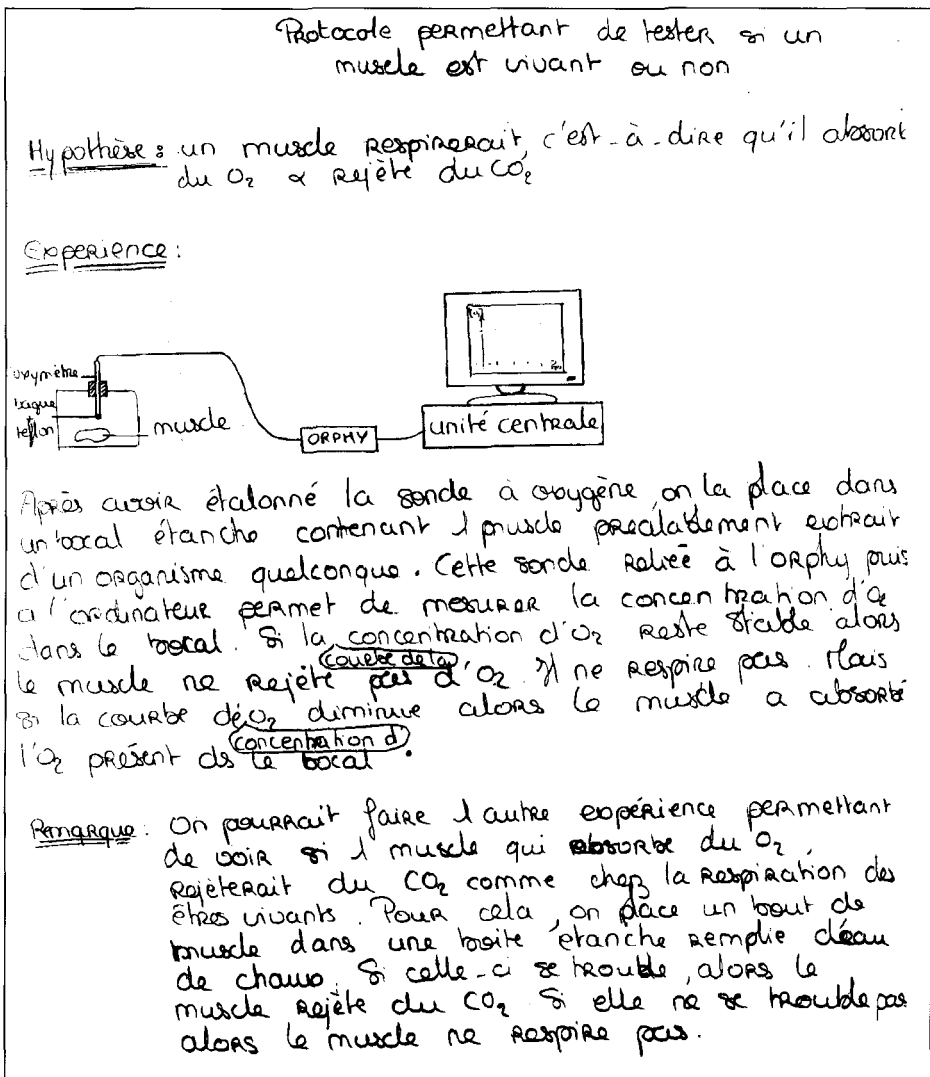 Protocole permettant de tester si un
muscle est vivant ou non
Hypothèse : un muscle respirerait, c'est-à-dire qu'il absort
du O₂ & rejète du CO₂
Experience :
[O₂]
oxymètre
bague
teflon
muscle
ORPHY
unité centrale
Après avoir étalonné la sonde à oxygène, on la place dans
un bocal étanche contenant 1 muscle préalablement extrait
d'un organisme quelconque. Cette sonde reliée à l'ORPHY puis
a l'ordinateur permet de mesurer la concentration d'O₂
dans le bocal. Si la concentration d'O₂ reste stable alors
le muscle ne rejète pas d'O₂. Il ne respire pas. Mais
courbe de la
si la courbe de O₂ diminue alors le muscle a absorbé
concentration d'
l'O₂ présent ds le bocal.
Remarque : On pourrait faire 1 autre expérience permettant
de voir si 1 muscle qui absorbe du O₂,
rejèterait du CO₂ comme chez la respiration des
êtres vivants. Pour cela, on place un bout de
muscle dans une boite étanche remplie d'eau
de chaux. Si celle-ci se trouble, alors le
muscle rejète du CO₂. Si elle ne se trouble pas
alors le muscle ne respire pas.